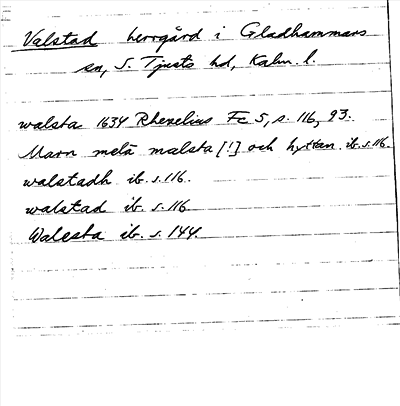 Valstad herrgård i Gladhammars
sn, S. Tjusts hd, Kalm. l.
walsta 1634 Rhezelius Fc 5, s. 116, 93.
Marn melä malsta [!] och hyttan ib. s. 116.
walstadh ib. s. 116.
walstad ib. s. 116
Walesta ib. s. 144.